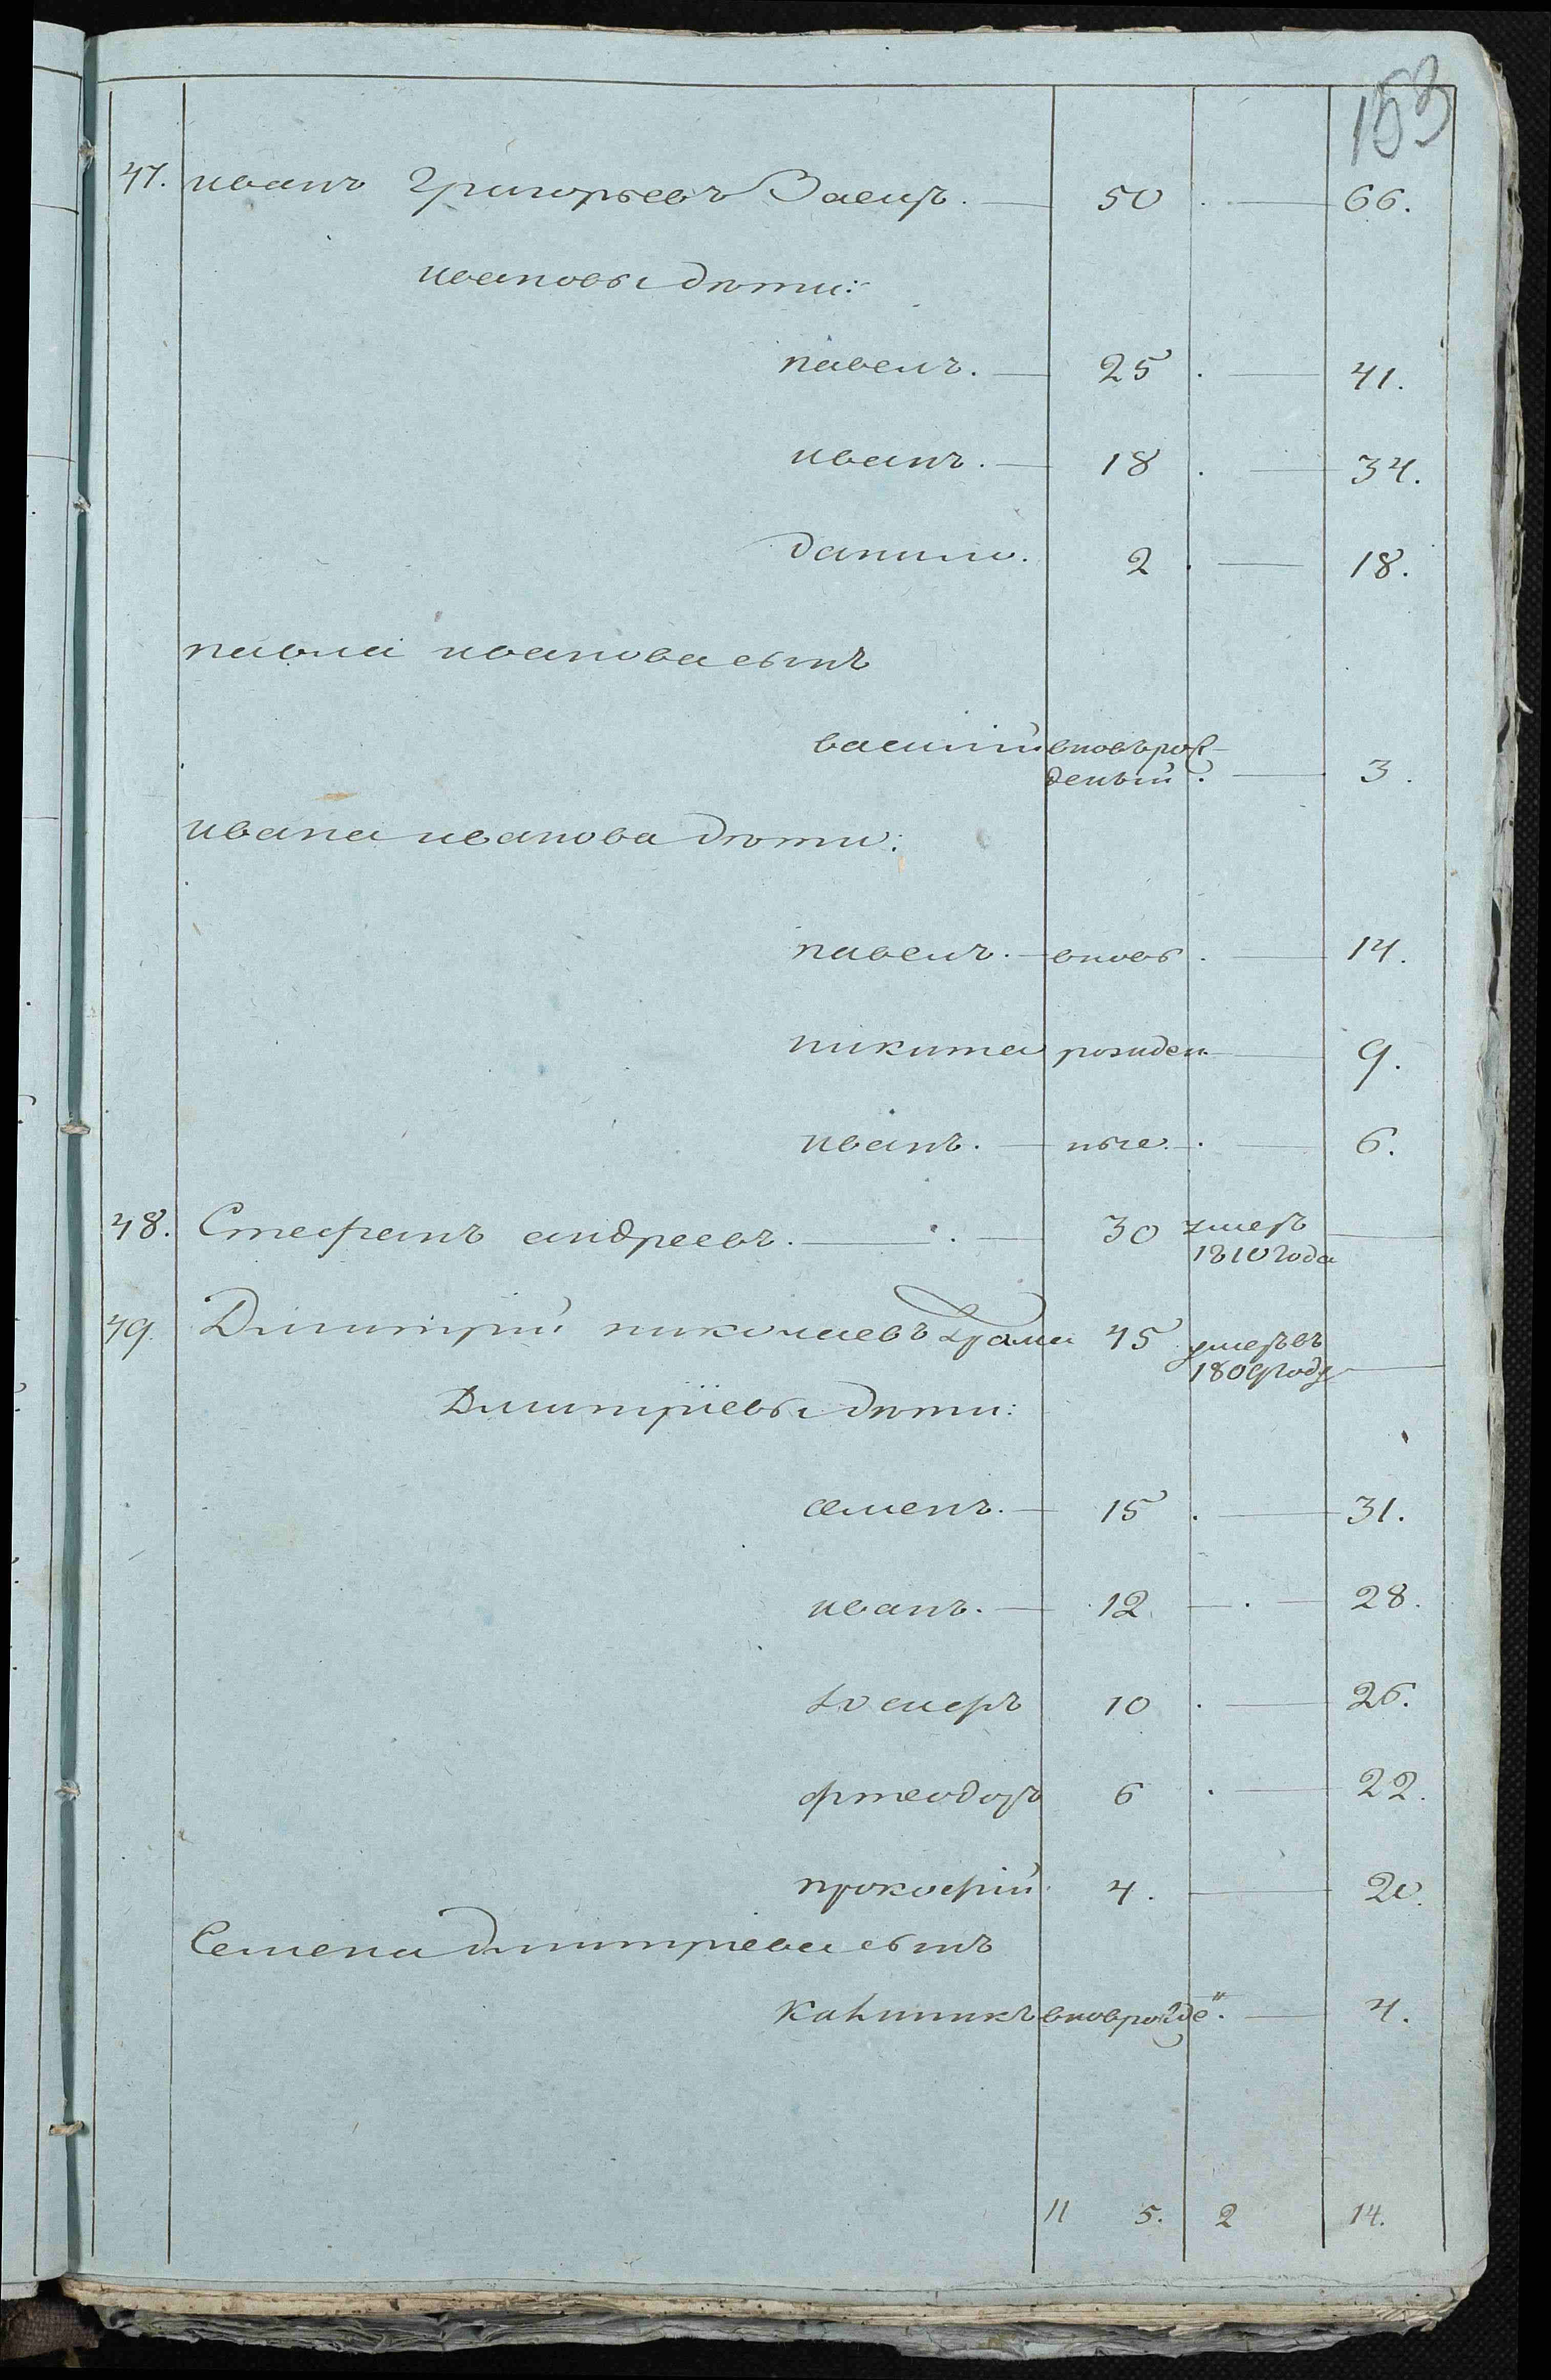 153
47. иванъ Григорьевъ Заецъ. 50 66.
ивановы дѣти:
павелъ. 25 41.
иванъ. 18 34.
данило. 2 18.
павла иванова сынъ
василій вновьрож-
деный. 3.
ивана иванова дѣти:
павелъ. вновь 14.
никита рожден 9.
иванъ. ные. 6.
48. Стефанъ андреевъ. 30 умеръ
1810 года
49. Димитрій николаевъ 45 умеръ въ
1809 году
Димитріевы дѣти:
семенъ. 15 31.
иванъ. 12 28.
10 26.
фтеодоръ 6 22.
прокофій 4. 20.
Семена димитріева сынъ
калиникъ вноврожде. 4.
11 5. 2 14.